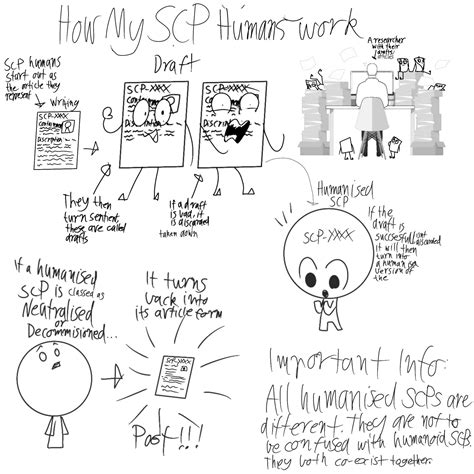 How My SCP Humans work
SCP humans
start out as
the article they
represent
Writing
SCP-XXXX
Draft
SCP-XXXX
SCP-XXXX
Description
A researcher
with their
drafts/
articles
They then
turn sentient,
these are called
drafts
If a draft
is bad, it is
discarded
taken down
Humanised
SCP
SCP-XXXX
If the
draft is
successful/not
discarded
it will then
turn into
a humanised
version of
the
If a humanised
SCP is classed as
Neutralised
or
Decommisioned...
It turns
back into
its article form
SCP-XXXX
Poof!!!
Important Info:
All humanised SCPs are
different. They are not to
be confused with humanoid SCPs.
They both co-exist together.